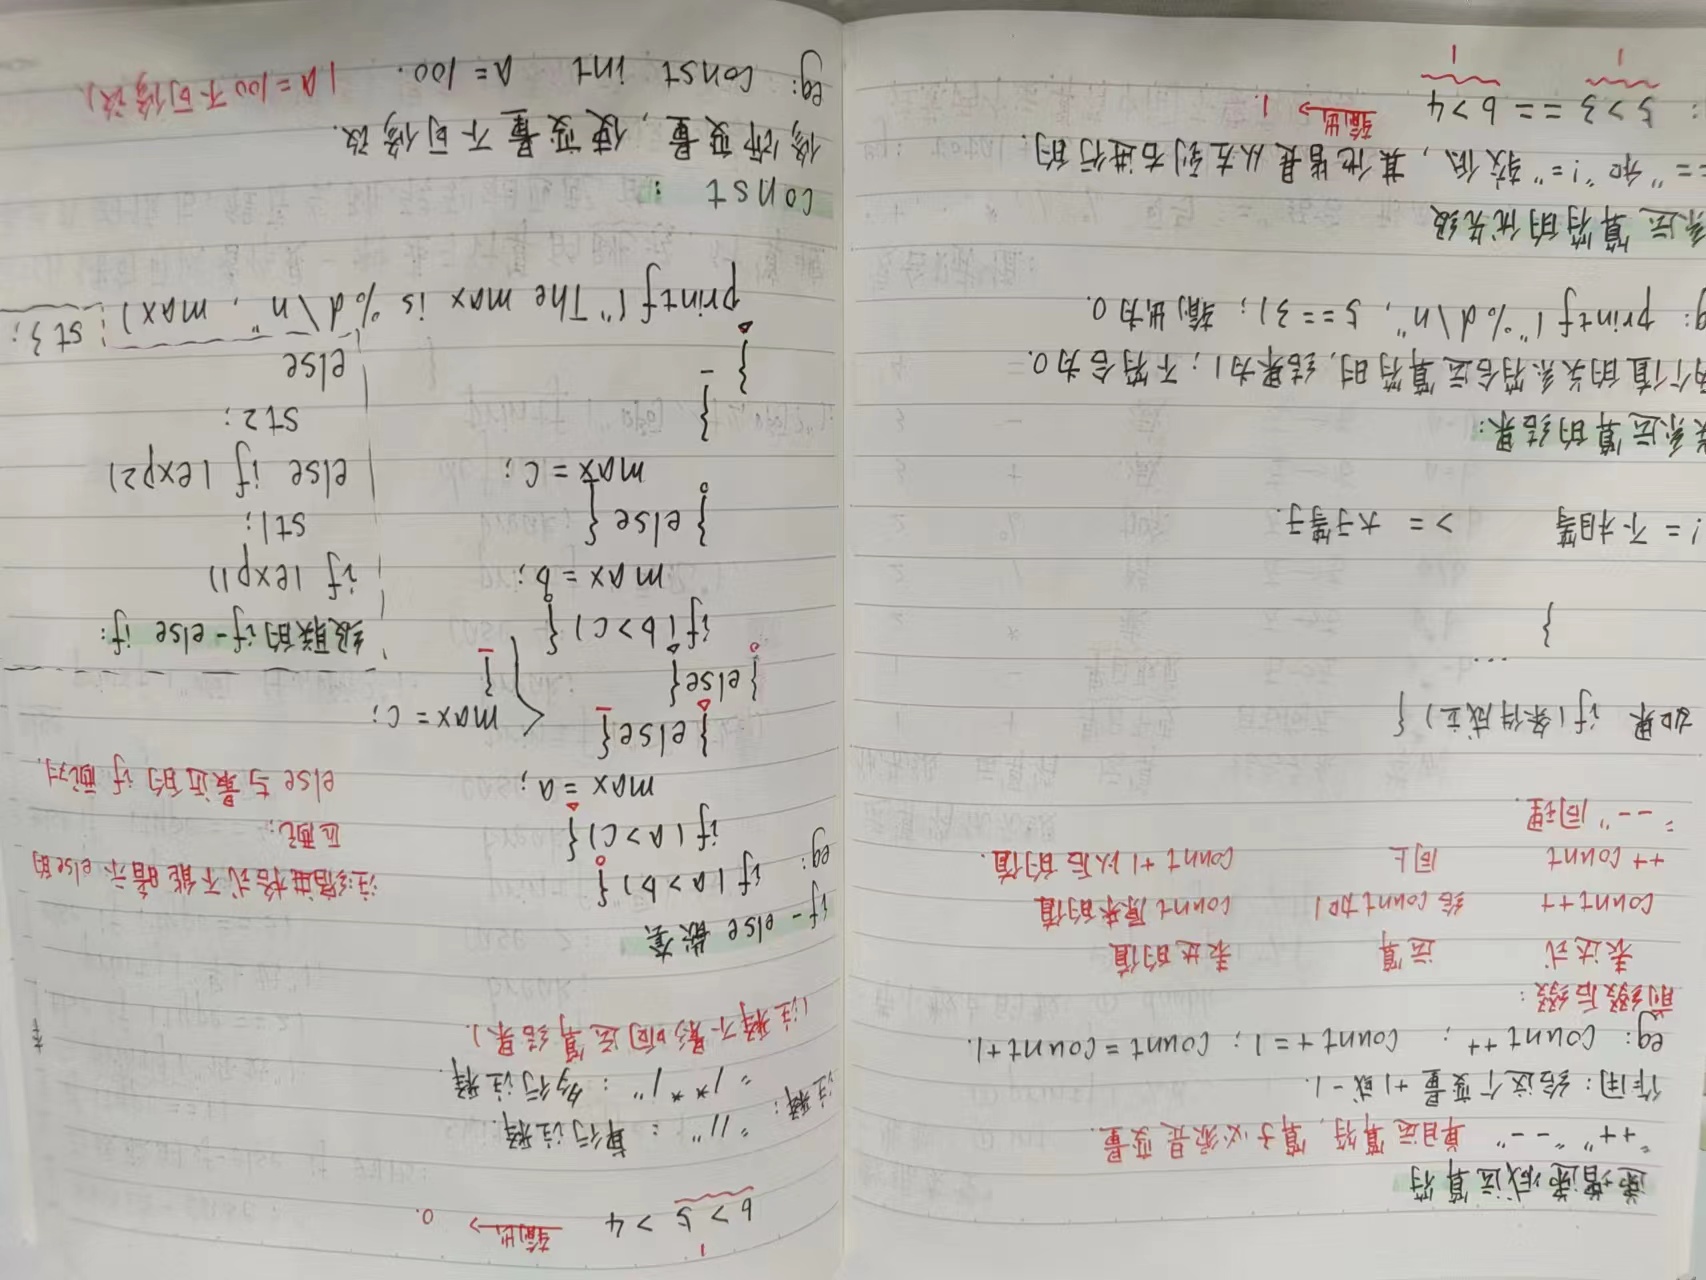 递增递减运算符
"++" "--" 单目运算符,算子必须是变量.
作用:给这个变量+1或-1.
eg: count++ ; count+=1; count=count+1.
前缀后缀:
表达式 运算 表达的值
count++ 给count加1 count原来的值
++count 同上 count+1以后的值.
"--"同理.
如果 if(条件成立) {
...
}
!= 不相等 >= 大于等于.
关系运算的结果:
两个值的关系符合运算符时,结果为1;不符合为0.
eg: printf("%d\n", 5==3); 输出为0.
关系运算符的优先级
"=="和"!="较低,其他皆是从左到右进行的
: 5>3 == 6>4 输出→ 1.
1 1
1
6>5>4 输出→ 0.
注释: "//" : 单行注释.
"/**/" : 多行注释.
(注释不影响运算结果)
if-else嵌套
eg: if(a>b) {
if(a>c) {
max=a;
} else {
max=c;
}
} else {
if(b>c) {
max=b;
} else {
max=c;
}
}
printf("The max is %d\n", max);
注:缩进格式不能暗示else的
匹配;
else与最近的if配对.
级联的if-else if:
if(exp1)
st1;
else if(exp2)
st2;
else
st3;
const :
修饰变量,使变量不可修改.
eg: const int a=100. (a=100不可修改).